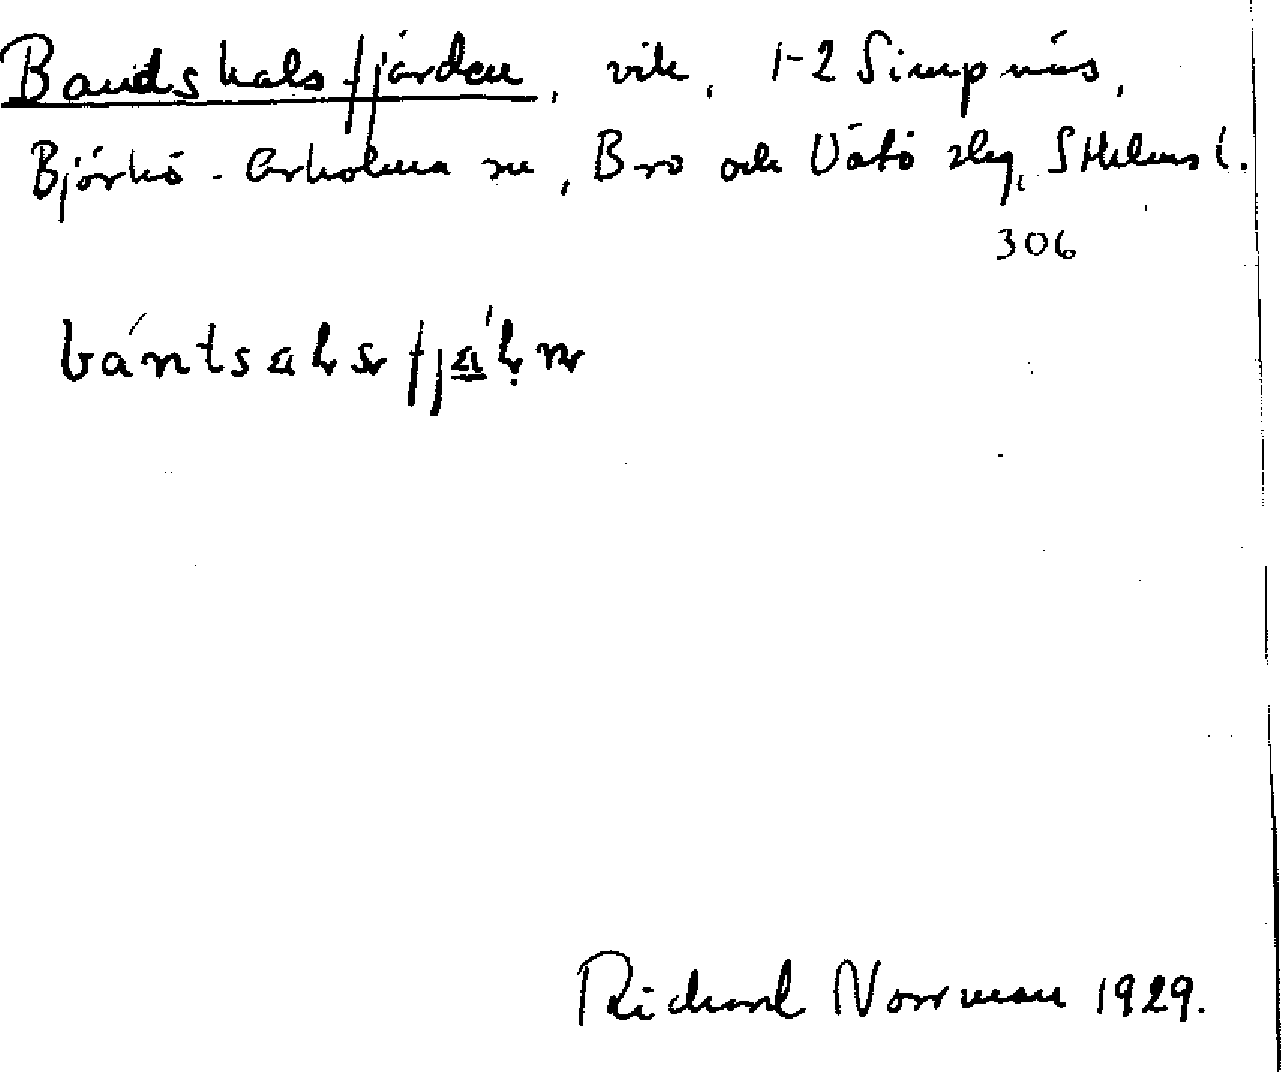 Bandshalsfjärden, vik, 1-2 Simpnäs,
Björkö-Arholma sn, Bro och Vätö slg, Sthlms l.
306
bántsalsfjä'ḷn
Richard Norrman 1929.